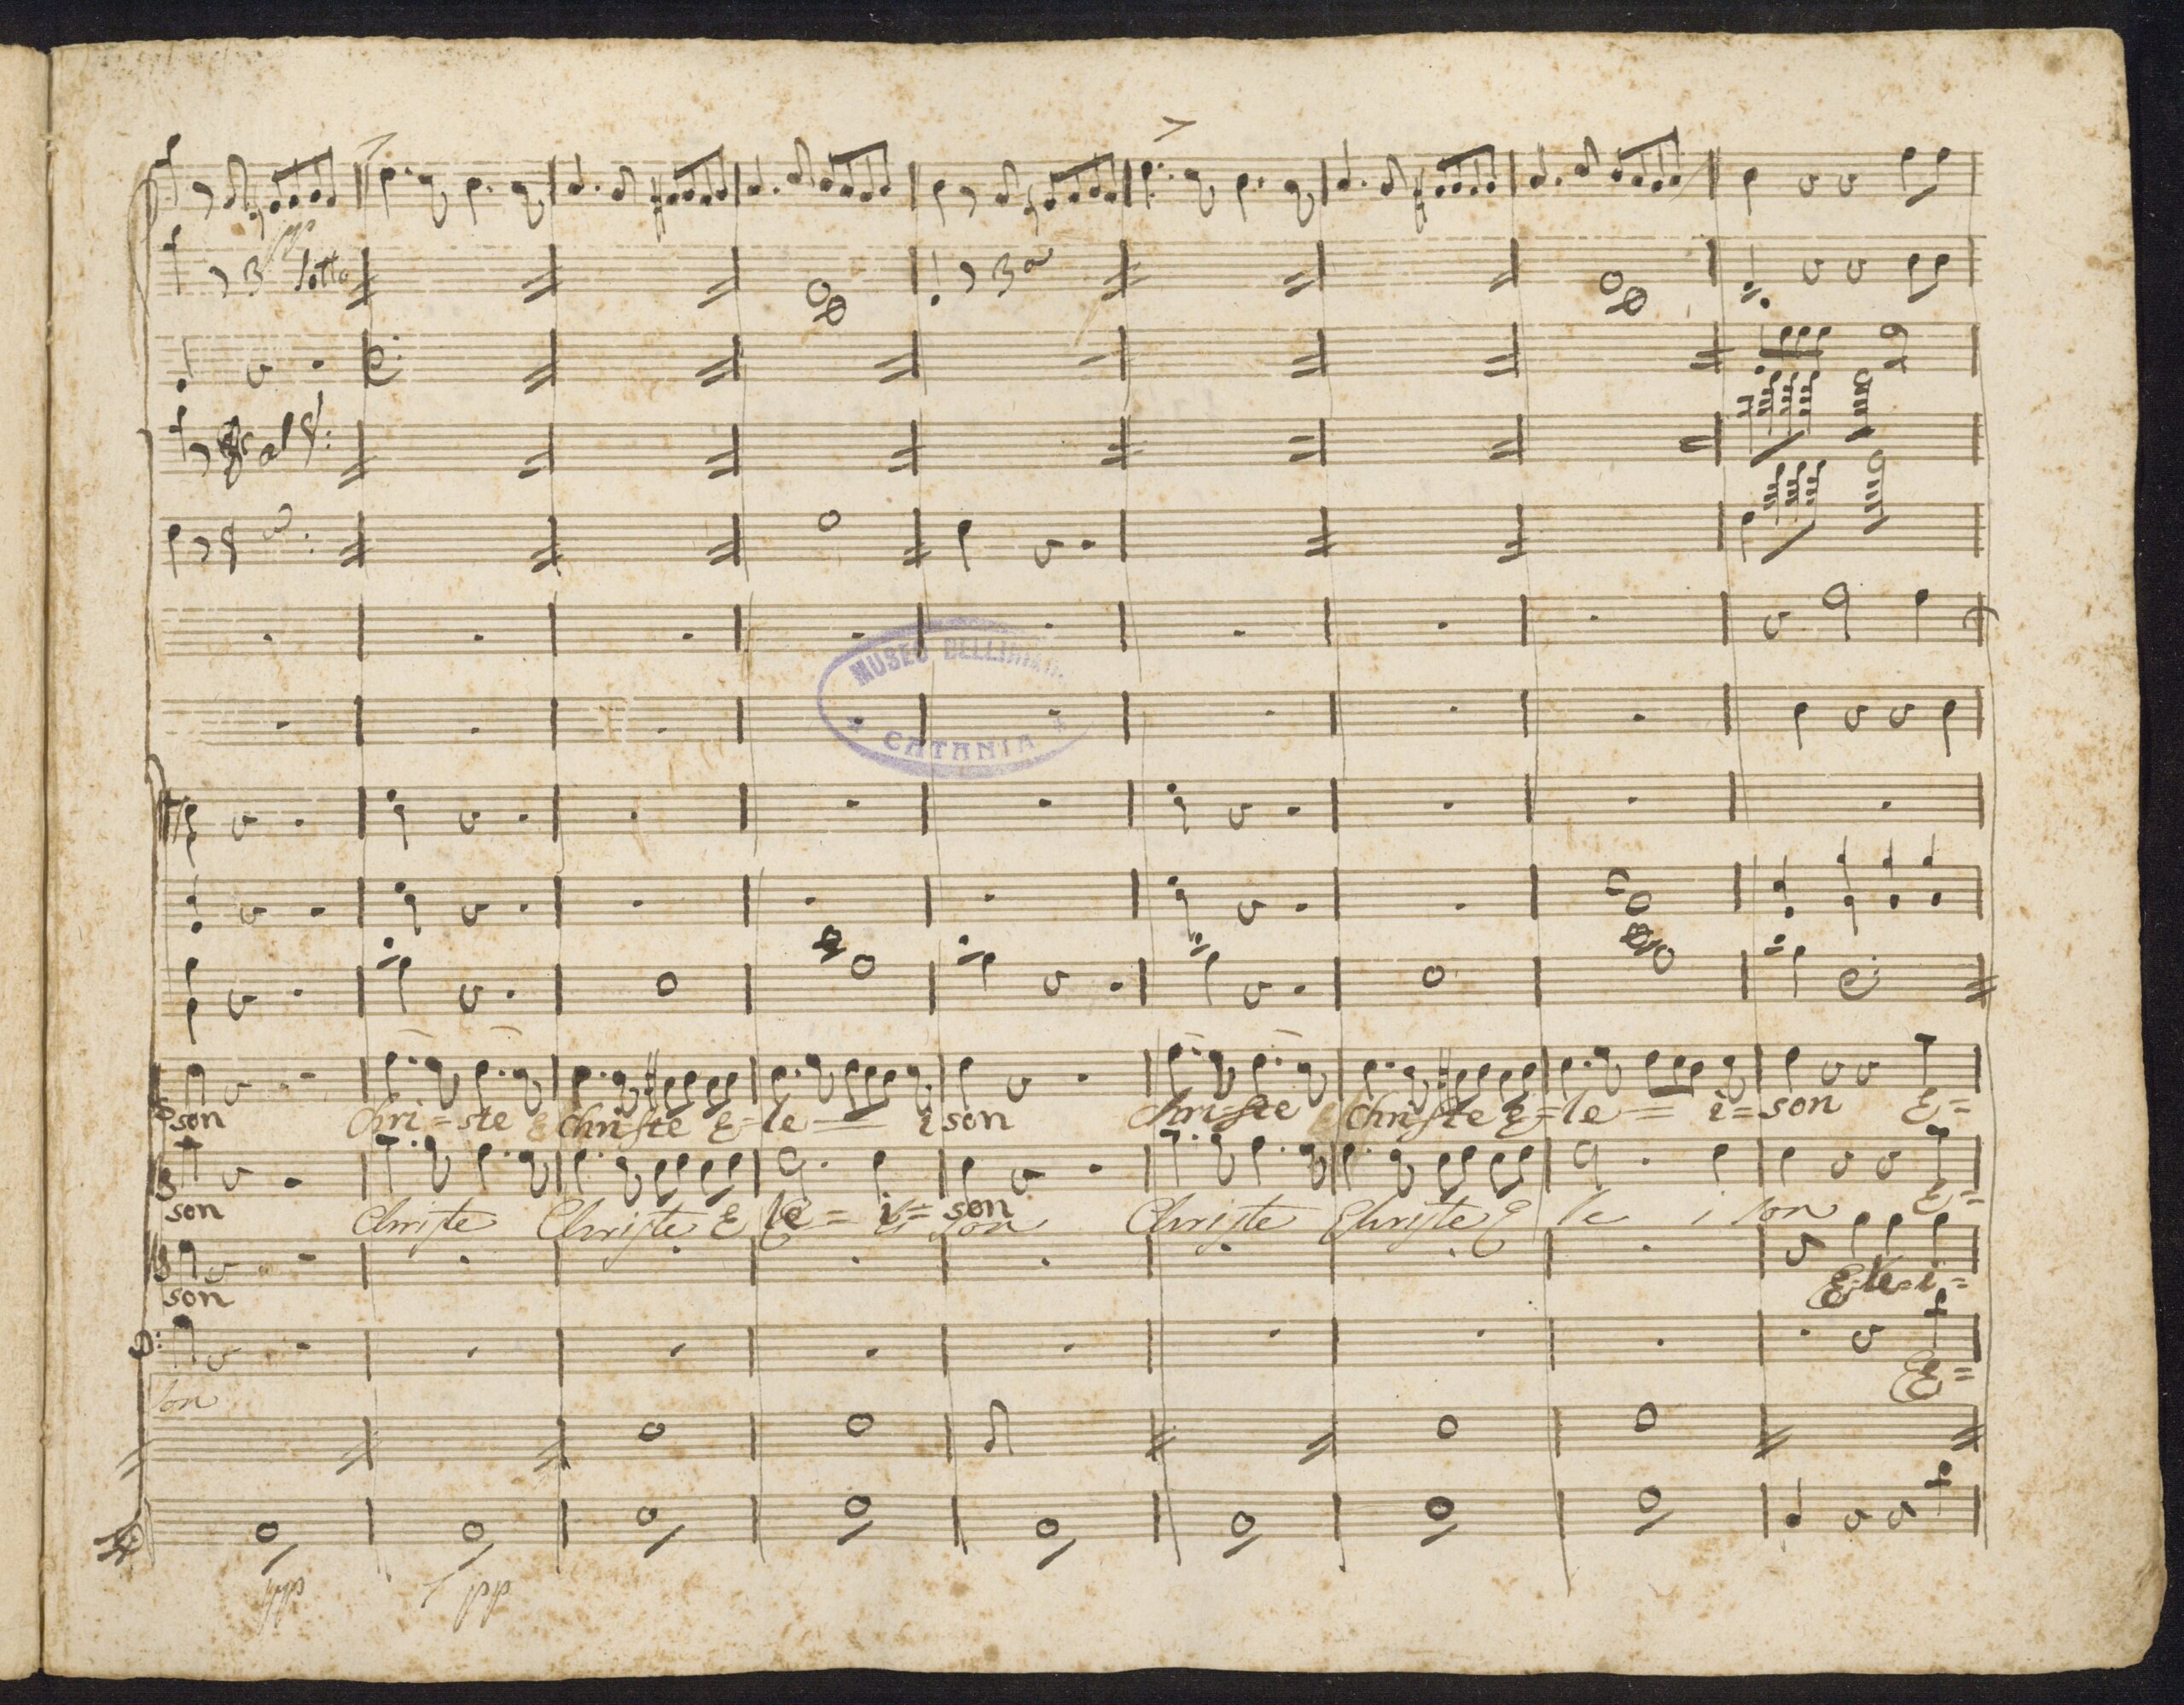 pp
sotto
8:
MUSEO BELLINIANO
CATANIA
son Chri=ste E Christe E=le= i son Chri=ste E Christe E=le= i= son E=
son Christe Christe E le= i= son Christe Christe E le i son E=
son E=le=i=
son E=
pp pp